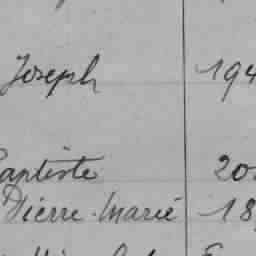 Joseph 194
Baptiste 20
Pierre-Marie 18